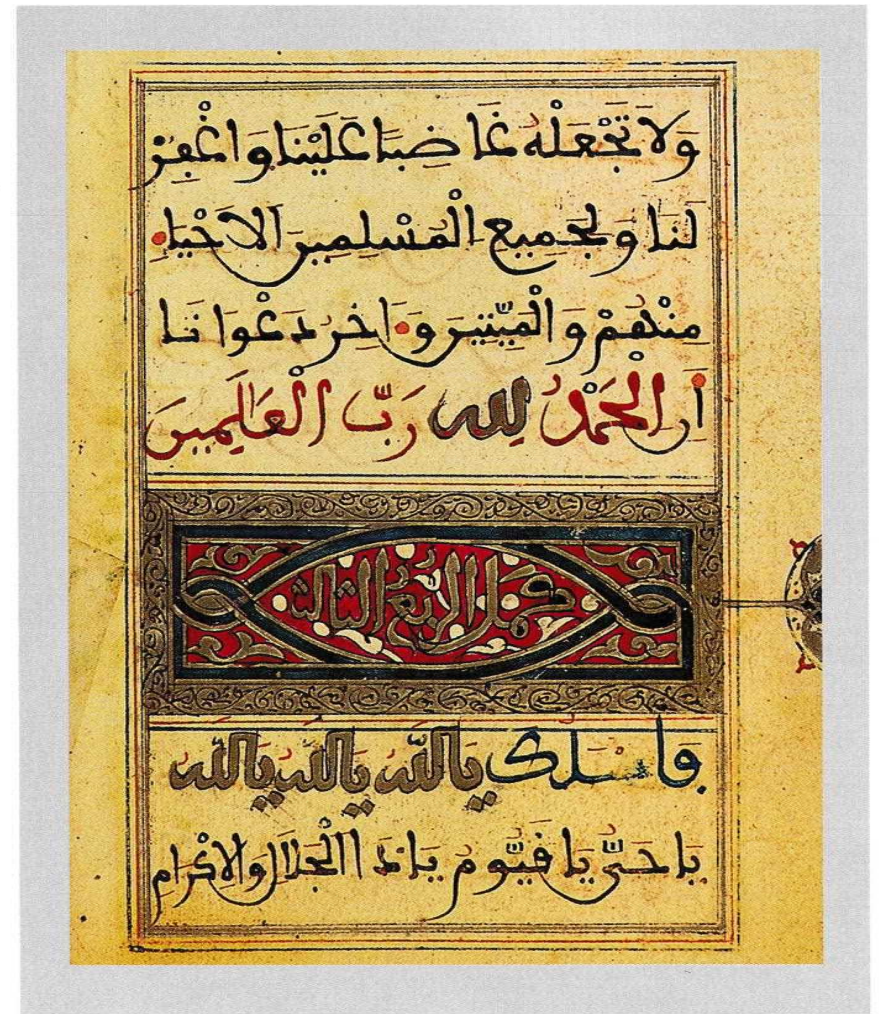 وَلَا تَجْعَلْهُ غَاضِبًا عَلَيْنَا وَاغْفِرْ
لَنَا وَلِجَمِيعِ الْمُسْلِمِينَ الَاحْيَاءِ
مِنْهُمْ وَالْمَيِّتِينَ وَءَاخِرُ دَعْوَانَا
أَنِ الْحَمْدُ لِلهِ رَبِّ الْعَالَمِينَ
كمل الربع الثالث
فأسئلك يَاللهُ يَاللهُ يَاللهُ
يَا حَيُّ يَا قَيُّومُ يَا ذَا الْجَلَالِ وَالِاكْرَامِ